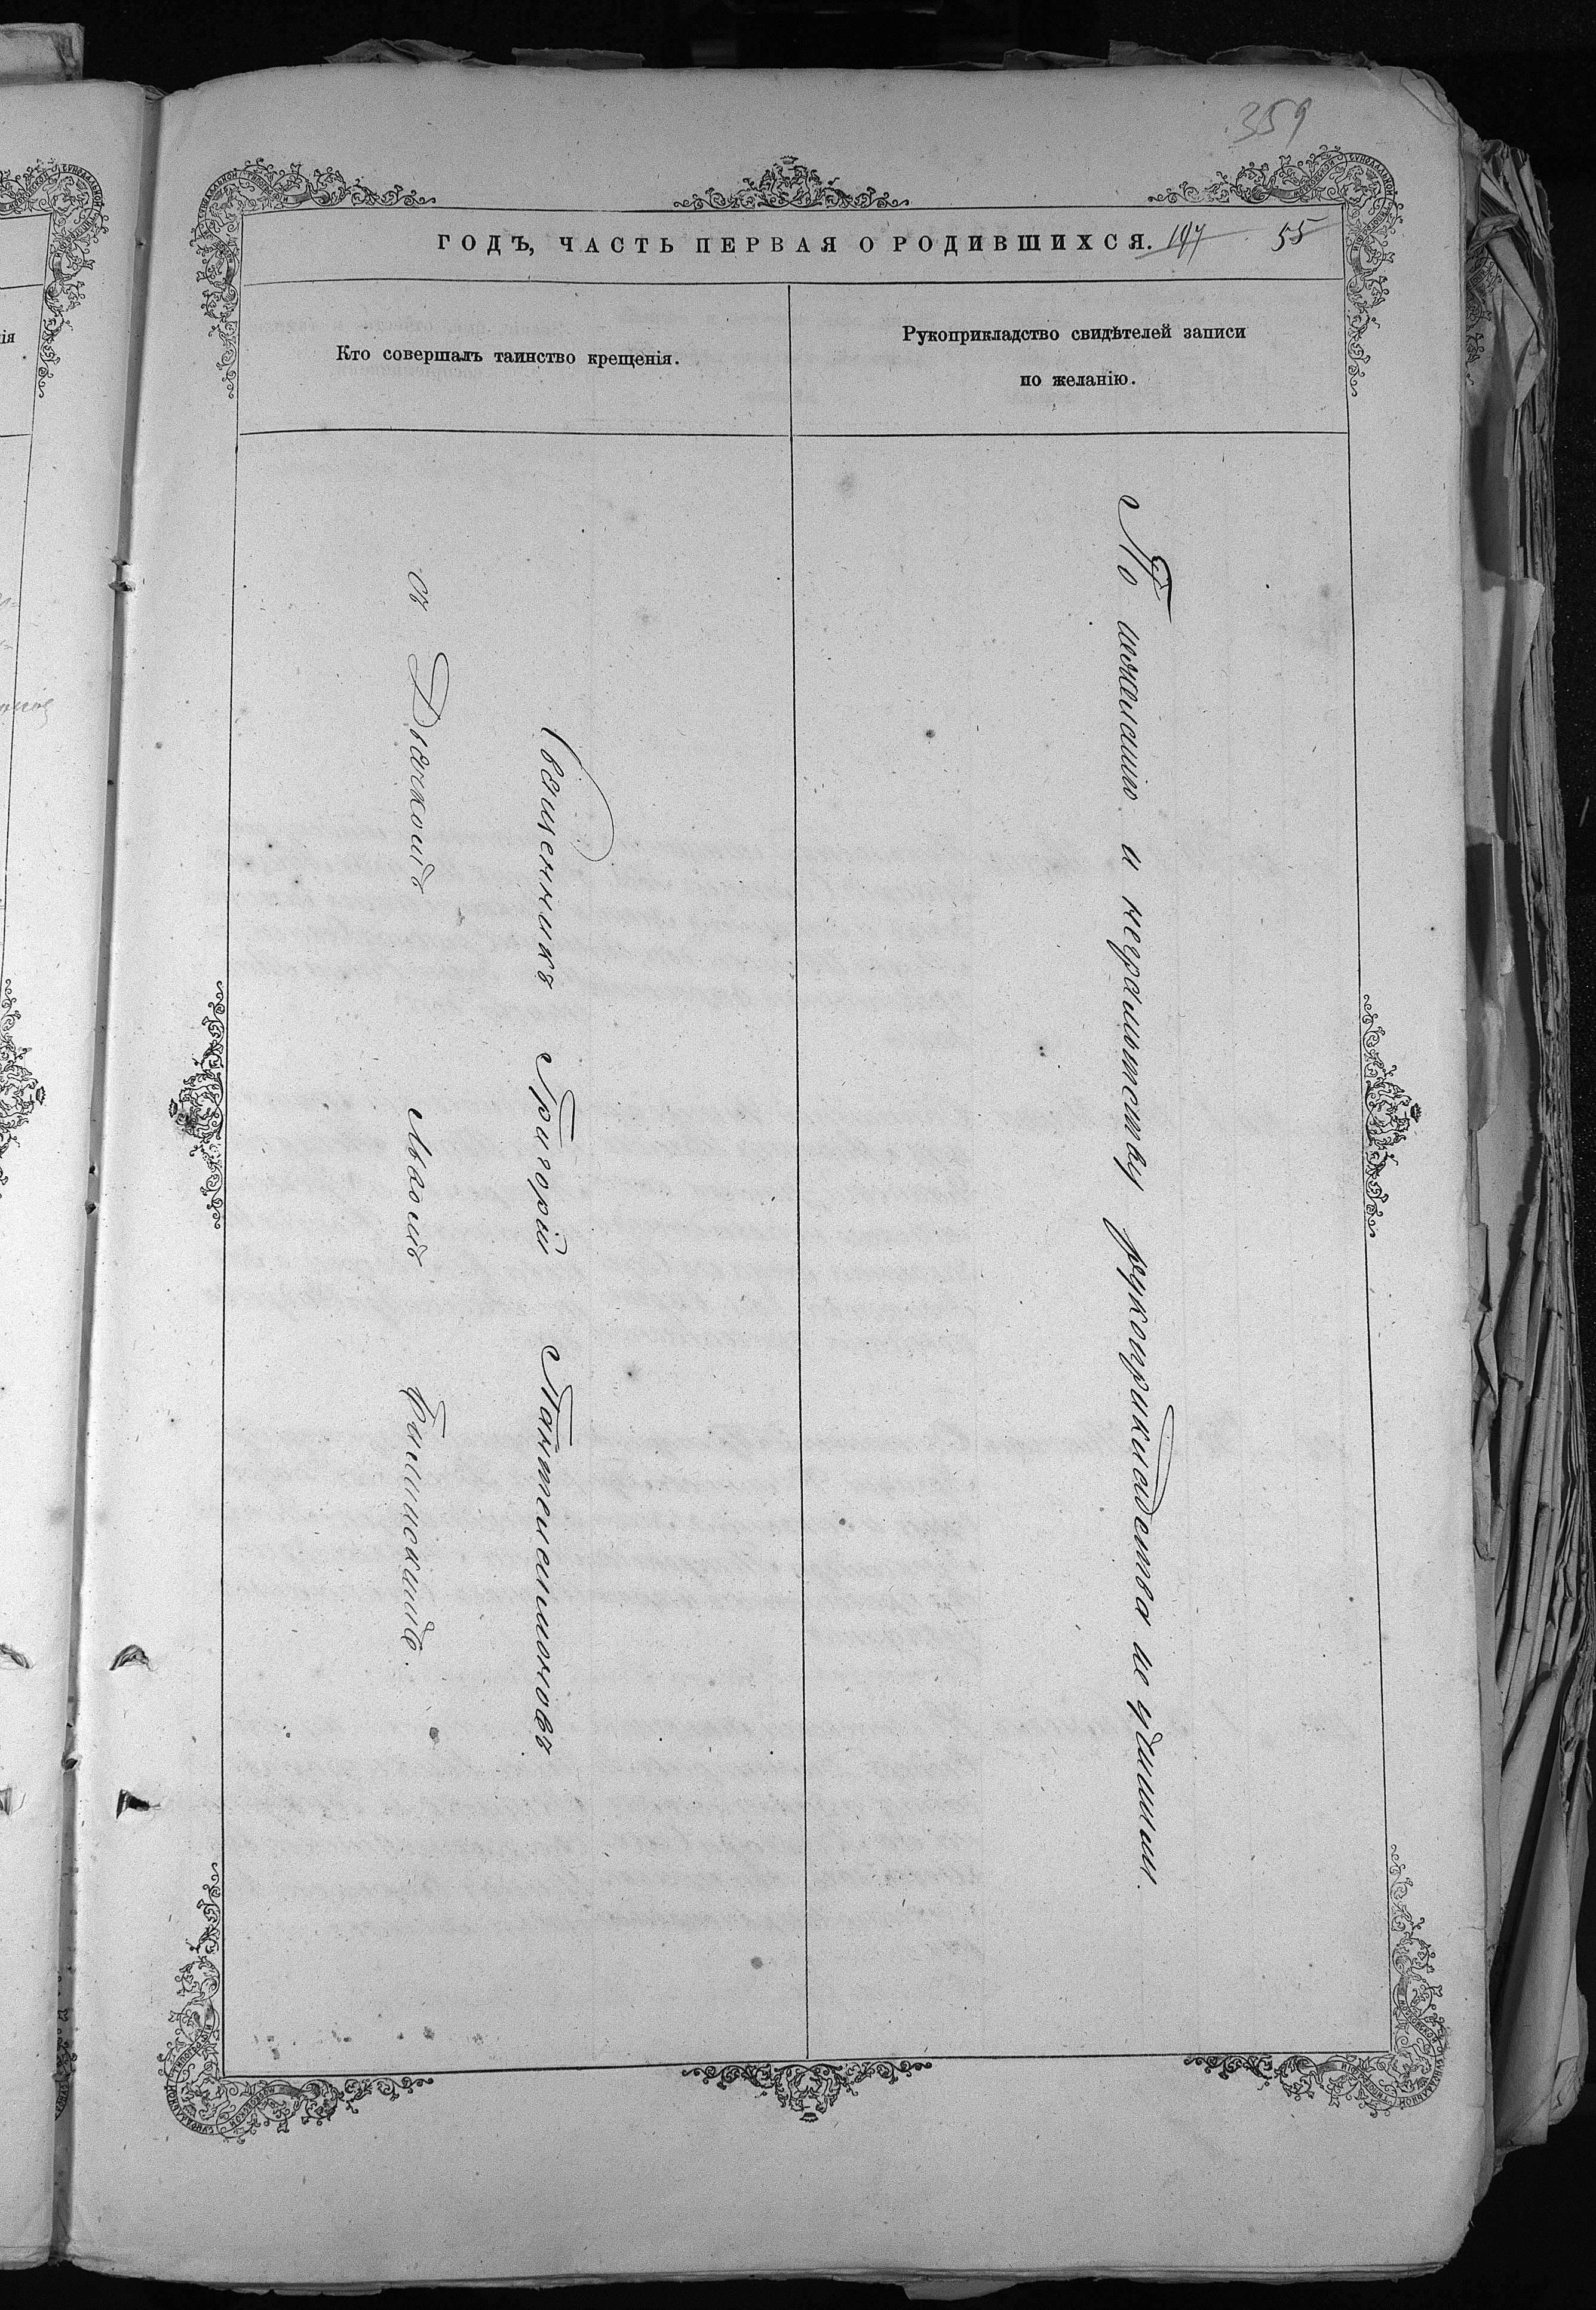 359
ГОДЪ, ЧАСТЬ ПЕРВАЯ О РОДИВШИХСЯ. 197 55
Кто совершалъ таинство крещенія.
Рукоприкладство свидѣтелей записи
по желанію.
Священникъ Григорій Пантелеимоновъ
съ Дьячкомъ
По желанію и неграмотству рукоприкладства не учинили.